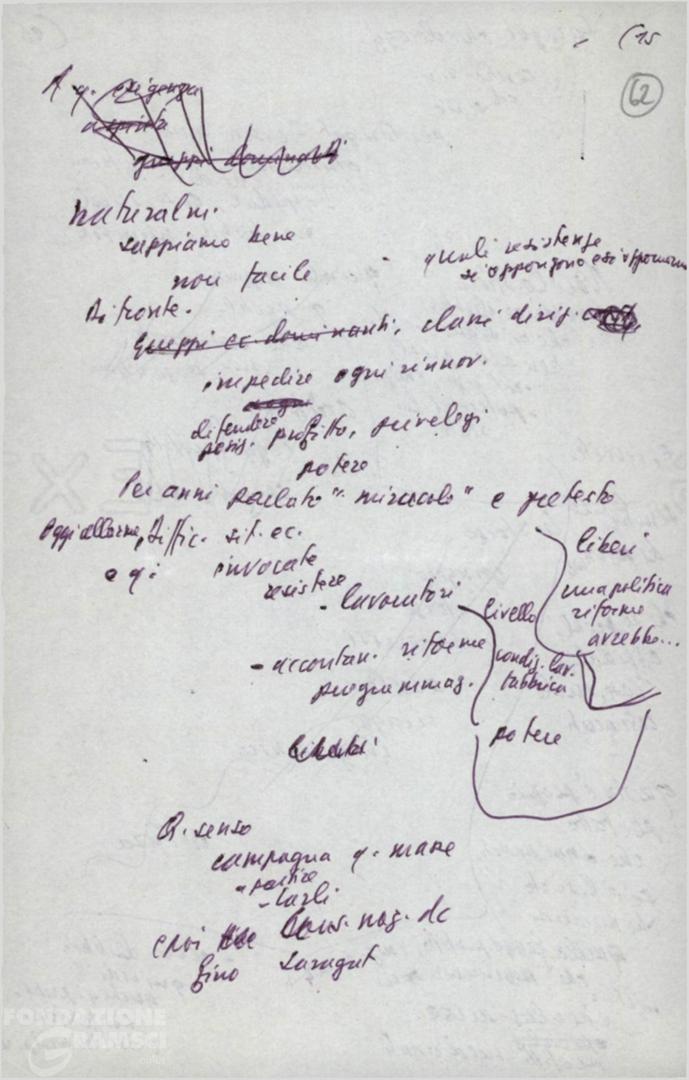 (15
62
A q. esigenza
aspirta
gruppi dominanti
naturalm.
sappiamo bene
non facile
quali resistenze
si oppongono e si opporrann
Di fronte.
gruppi ec. dominanti, classi dirig.
impedire ogni rinnov.
difendere
posiz. profitto, privelegi
potere
Per anni parlato "miracolo" e pretesto
Oggi allarme, diffic. sit. ec.
e q: invocate
resistere
- lavoratori
- accanton. riforme
programmaz.
livello
condiz. lav.
fabbrica
potere
liberi
una politica
riforme
avrebbe...
Q. senso
campagna q. mane
- partire
- Carli
Cons. naz. dc
fino Saragat
FONDAZIONE
GRAMSCI